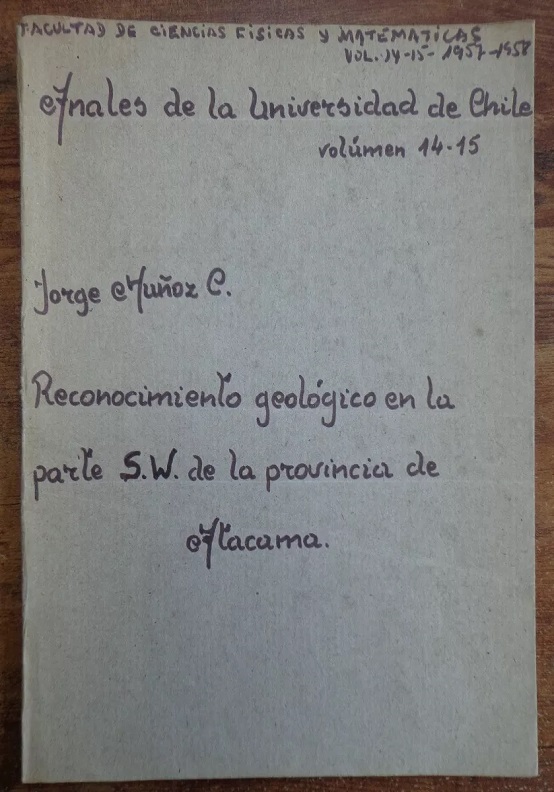 FACULTAD DE CIENCIAS FISICAS Y MATEMATICAS
VOL. 14-15- 1957-1958
Anales de la Universidad de Chile
volúmen 14-15
Jorge Muñoz C.
Reconocimiento geológico en la
parte S.W. de la provincia de
Atacama.